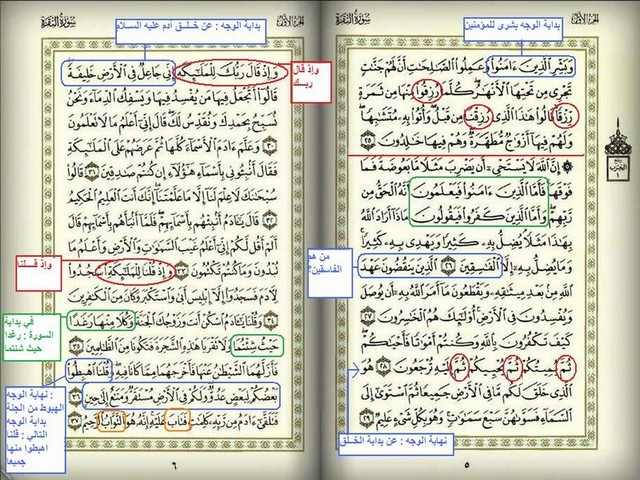 الجزء الأول
سورة البقرة
بداية الوجه بشرى للمؤمنين
وَبَشِّرِ الَّذِينَ ءَامَنُوا وَعَمِلُوا الصَّٰلِحَٰتِ أَنَّ لَهُمْ جَنَّٰتٍ
تَجْرِى مِن تَحْتِهَا الْأَنْهَٰرُ كُلَّمَا رُزِقُوا مِنْهَا مِن ثَمَرَةٍ
رِّزْقًا قَالُوا هَٰذَا الَّذِى رُزِقْنَا مِن قَبْلُ وَأُتُوا بِهِ مُتَشَٰبِهًا
وَلَهُمْ فِيهَا أَزْوَٰجٌ مُّطَهَّرَةٌ وَهُمْ فِيهَا خَٰلِدُونَ ٢٥
۞ إِنَّ اللَّهَ لَا يَسْتَحْىِ أَن يَضْرِبَ مَثَلًا مَّا بَعُوضَةً فَمَا
فَوْقَهَا فَأَمَّا الَّذِينَ ءَامَنُوا فَيَعْلَمُونَ أَنَّهُ الْحَقُّ مِن
رَّبِّهِمْ وَأَمَّا الَّذِينَ كَفَرُوا فَيَقُولُونَ مَاذَا أَرَادَ اللَّهُ
بِهَٰذَا مَثَلًا يُضِلُّ بِهِ كَثِيرًا وَيَهْدِى بِهِ كَثِيرًا
وَمَا يُضِلُّ بِهِ إِلَّا الْفَٰسِقِينَ ٢٦ الَّذِينَ يَنقُضُونَ عَهْدَ
اللَّهِ مِن بَعْدِ مِيثَٰقِهِ وَيَقْطَعُونَ مَا أَمَرَ اللَّهُ بِهِ أَن يُوصَلَ
وَيُفْسِدُونَ فِى الْأَرْضِ أُولَٰئِكَ هُمُ الْخَٰسِرُونَ ٢٧
كَيْفَ تَكْفُرُونَ بِاللَّهِ وَكُنتُمْ أَمْوَٰتًا فَأَحْيَٰكُمْ
ثُمَّ يُمِيتُكُمْ ثُمَّ يُحْيِيكُمْ ثُمَّ إِلَيْهِ تُرْجَعُونَ ٢٨ هُوَ
الَّذِى خَلَقَ لَكُم مَّا فِى الْأَرْضِ جَمِيعًا ثُمَّ اسْتَوَىٰ إِلَى
السَّمَاءِ فَسَوَّىٰهُنَّ سَبْعَ سَمَٰوَٰتٍ وَهُوَ بِكُلِّ شَىْءٍ عَلِيمٌ ٢٩
من هم
الفاسقين؟
نهاية الوجه : عن بداية الخلق
ربع
الحزب
١
٥
الجزء الأول
سورة البقرة
بداية الوجه : عن خلق آدم عليه السلام
وَإِذْ قَالَ رَبُّكَ لِلْمَلَٰئِكَةِ إِنِّى جَاعِلٌ فِى الْأَرْضِ خَلِيفَةً
قَالُوا أَتَجْعَلُ فِيهَا مَن يُفْسِدُ فِيهَا وَيَسْفِكُ الدِّمَاءَ وَنَحْنُ
نُسَبِّحُ بِحَمْدِكَ وَنُقَدِّسُ لَكَ قَالَ إِنِّى أَعْلَمُ مَا لَا تَعْلَمُونَ
٣٠ وَعَلَّمَ ءَادَمَ الْأَسْمَاءَ كُلَّهَا ثُمَّ عَرَضَهُمْ عَلَى الْمَلَٰئِكَةِ
فَقَالَ أَنبِئُونِى بِأَسْمَاءِ هَٰؤُلَاءِ إِن كُنتُمْ صَٰدِقِينَ ٣١ قَالُوا
سُبْحَٰنَكَ لَا عِلْمَ لَنَا إِلَّا مَا عَلَّمْتَنَا إِنَّكَ أَنتَ الْعَلِيمُ الْحَكِيمُ
٣٢ قَالَ يَٰـَٔادَمُ أَنبِئْهُم بِأَسْمَائِهِمْ فَلَمَّا أَنبَأَهُم بِأَسْمَائِهِمْ قَالَ
أَلَمْ أَقُل لَّكُمْ إِنِّى أَعْلَمُ غَيْبَ السَّمَٰوَٰتِ وَالْأَرْضِ وَأَعْلَمُ مَا
تُبْدُونَ وَمَا كُنتُمْ تَكْتُمُونَ ٣٣ وَإِذْ قُلْنَا لِلْمَلَٰئِكَةِ اسْجُدُوا
لِءَادَمَ فَسَجَدُوا إِلَّا إِبْلِيسَ أَبَىٰ وَاسْتَكْبَرَ وَكَانَ مِنَ الْكَٰفِرِينَ
٣٤ وَقُلْنَا يَٰـَٔادَمُ اسْكُنْ أَنتَ وَزَوْجُكَ الْجَنَّةَ وَكُلَا مِنْهَا رَغَدًا
حَيْثُ شِئْتُمَا وَلَا تَقْرَبَا هَٰذِهِ الشَّجَرَةَ فَتَكُونَا مِنَ الظَّٰلِمِينَ ٣٥
فَأَزَلَّهُمَا الشَّيْطَٰنُ عَنْهَا فَأَخْرَجَهُمَا مِمَّا كَانَا فِيهِ وَقُلْنَا اهْبِطُوا
بَعْضُكُمْ لِبَعْضٍ عَدُوٌّ وَلَكُمْ فِى الْأَرْضِ مُسْتَقَرٌّ وَمَتَٰعٌ إِلَىٰ حِينٍ ٣٦
فَتَلَقَّىٰ ءَادَمُ مِن رَّبِّهِ كَلِمَٰتٍ فَتَابَ عَلَيْهِ إِنَّهُ هُوَ التَّوَّابُ الرَّحِيمُ ٣٧
وإذ قال
ربك
وإذ قلنا
في بداية
السورة : رغدا
حيث شئتما
نهاية الوجه :
الهبوط من الجنة
بداية الوجه
التالي : قلنا
اهبطوا منها
جميعا
٦